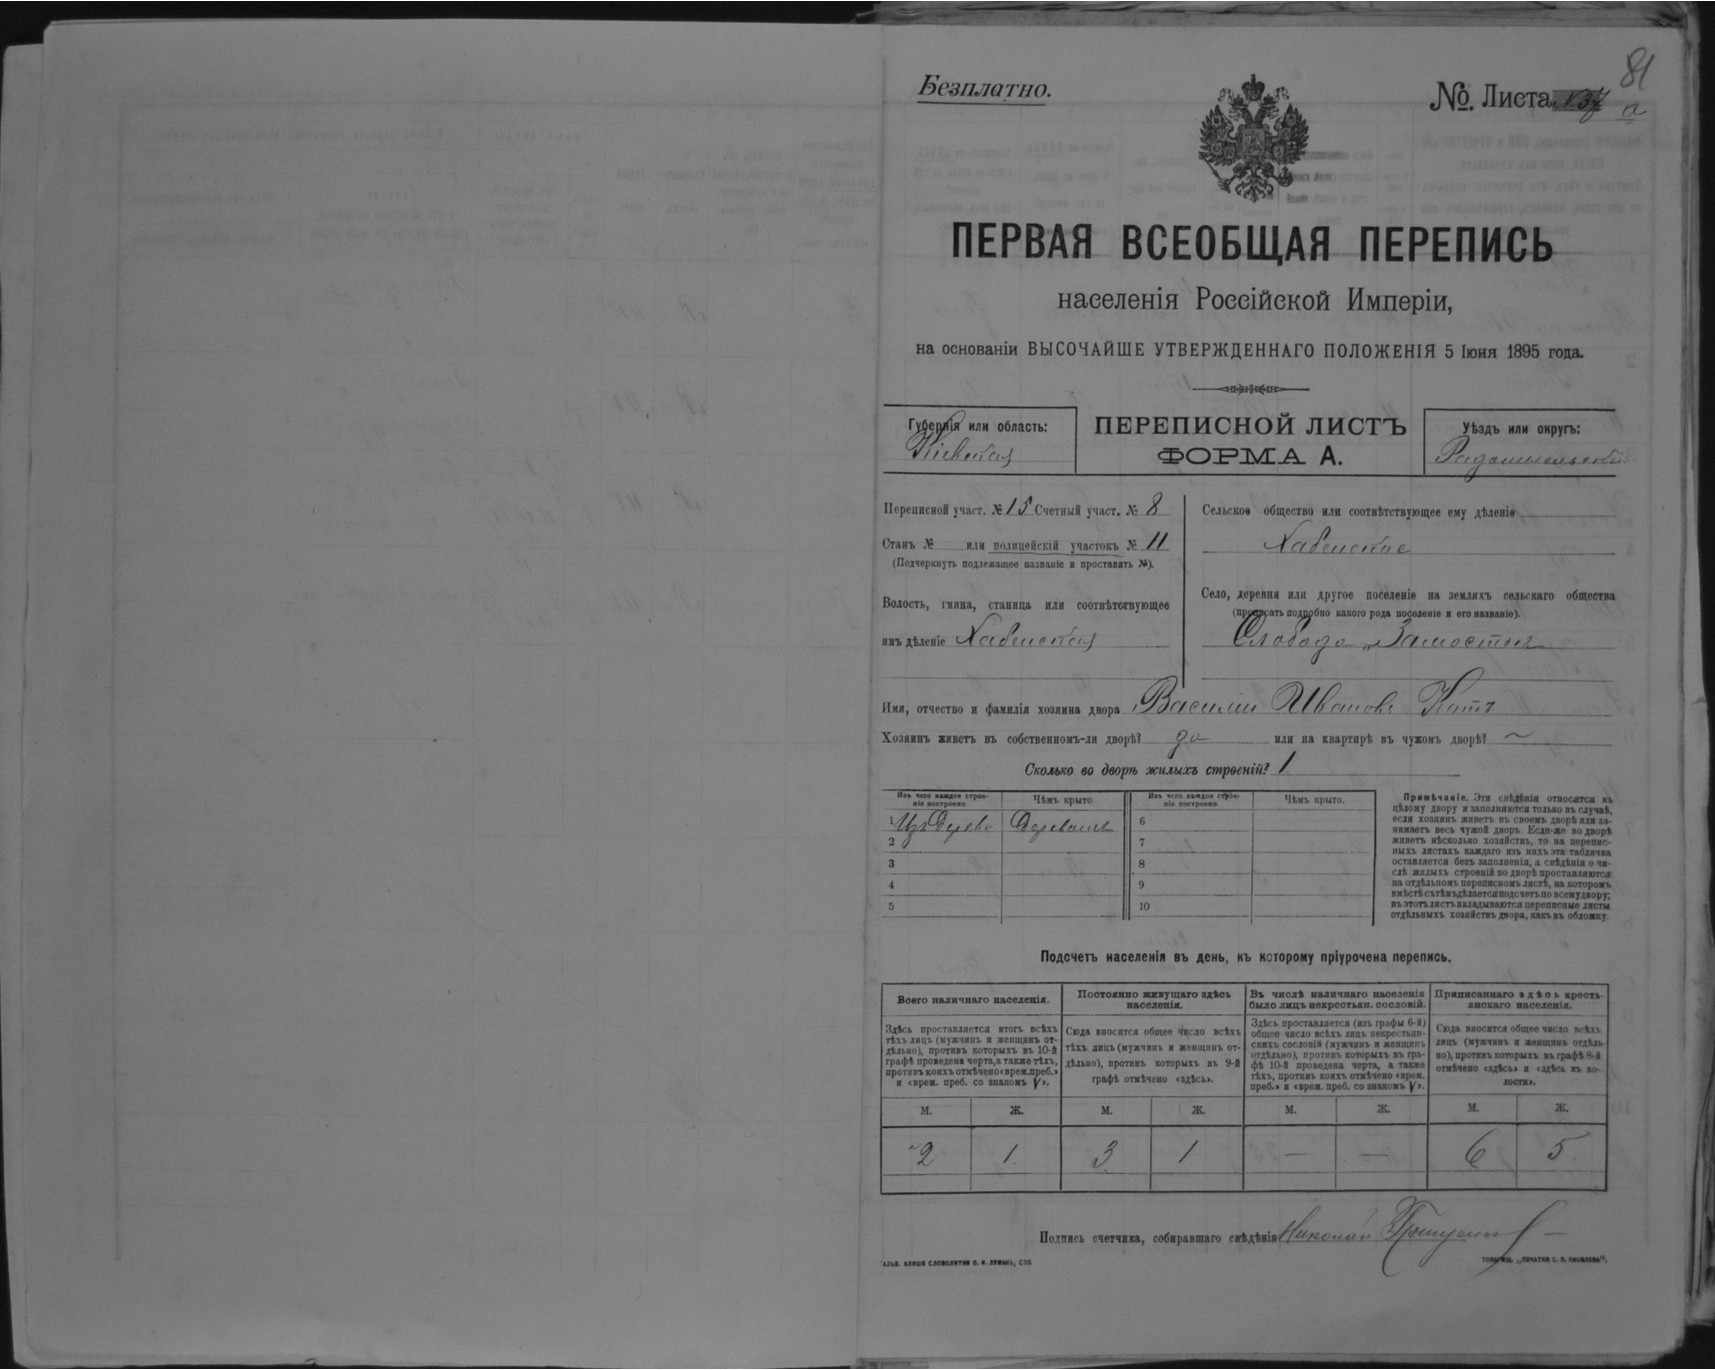 81
Безплатно.
№. Листа 37 а
ПЕРВАЯ ВСЕОБЩАЯ ПЕРЕПИСЬ
населенія Россійской Имперіи,
на основаніи ВЫСОЧАЙШЕ УТВЕРЖДЕННАГО ПОЛОЖЕНІЯ 5 Іюня 1895 года.
Губернія или область:
Кіевская
ПЕРЕПИСНОЙ ЛИСТЪ
ФОРМА А.
Уѣздъ или округъ:
Радомысльскій
Переписной участ. № 15 Счетный участ. № 8
Станъ № или полицейскій участокъ № 11
(Подчеркнуть подлежащее названіе и проставить №).
Волость, гмина, станица или соотвѣтствующее
имъ дѣленіе Хабенская
Сельское общество или соотвѣтствующее ему дѣленіе
Хабенское
Село, деревня или другое поселеніе на земляхъ сельскаго общества
(прописать подробно какого рода поселеніе и его названіе).
Слобода „Замостье
Имя, отчество и фамилія хозяина двора Василий Ивановъ
Хозяинъ живетъ въ собственномъ-ли дворѣ? да или на квартирѣ въ чужомъ дворѣ? ~
Сколько во дворѣ жилыхъ строеній? 1
Изъ чего каждое строе-
ніе построено
Чѣмъ крыто
1 Изъ дерева
2
3
4
5
Изъ чего каждое строе-
ніе построено
Чѣмъ крыто.
6
7
8
9
10
Примѣчаніе. Эти свѣдѣнія относятся къ
цѣлому двору и заполняются только въ случаѣ,
если хозяинъ живетъ въ своемъ дворѣ или за-
нимаетъ весь чужой дворъ. Если-же во дворѣ
живетъ нѣсколько хозяйствъ, то на перепис-
ныхъ листахъ каждаго изъ нихъ эта табличка
оставляется безъ заполненія, а свѣдѣнія о чи-
слѣ жилыхъ строеній во дворѣ проставляются
на отдѣльномъ переписномъ листѣ, на которомъ
вмѣстѣ съ тѣмъ дѣлается подсчетъ по всему двору;
въ этотъ листъ вкладываются переписные листы
отдѣльныхъ хозяйствъ двора, какъ въ обложку.
Подсчетъ населенія въ день, къ которому пріурочена перепись.
Всего наличнаго населенія.
Здѣсь проставляется итогъ всѣхъ
тѣхъ лицъ (мужчинъ и женщинъ от-
дѣльно), противъ которыхъ въ 10-й
графѣ проведена черта, а также тѣхъ,
противъ коихъ отмѣчено «врем. преб.»
и «врем. преб. со знакомъ V».
Постоянно живущаго здѣсь
населенія.
Сюда вносится общее число всѣхъ
тѣхъ лицъ (мужчинъ и женщинъ от-
дѣльно), противъ которыхъ въ 9-й
графѣ отмѣчено «здѣсь».
Въ числѣ наличнаго населенія
было лицъ некрестьян. сословій.
Здѣсь проставляется (изъ графы 6-й)
общее число всѣхъ лицъ некрестьян-
скихъ сословій (мужчинъ и женщинъ
отдѣльно), противъ которыхъ въ гра-
фѣ 10-й проведена черта, а также
тѣхъ, противъ коихъ отмѣчено «врем.
преб.» и «врем. преб. со знакомъ V».
Приписаннаго здѣсь кресть-
янскаго населенія.
Сюда вносится общее число всѣхъ
лицъ (мужчинъ и женщинъ отдѣль-
но), противъ которыхъ въ графѣ 8-й
отмѣчено «здѣсь» и «здѣсь въ во-
лости».
М. Ж. М. Ж. М. Ж. М. Ж.
2 1 3 1 — — 6 5
Подпись счетчика, собиравшаго свѣдѣнія Николай